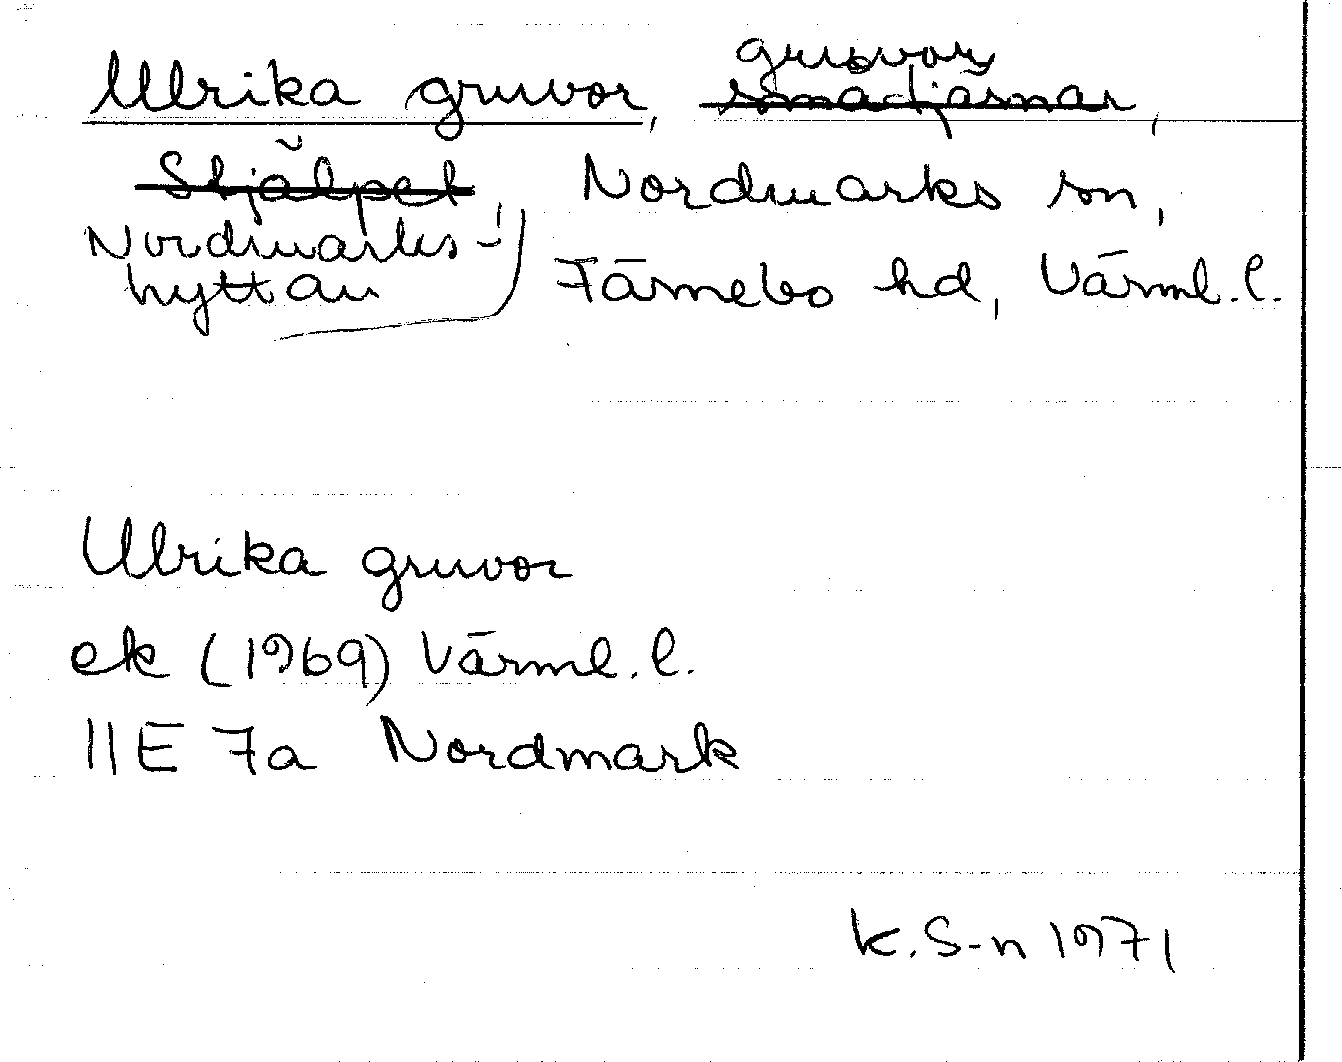 Ulrika gruvor, gruvor
Nordmarks-
hyttan
Nordmarks sn,
Färnebo hd, Värml. l.
Ulrika gruvor
ek (1969) Värml. l.
11E 7a Nordmark
K. S-n 1971